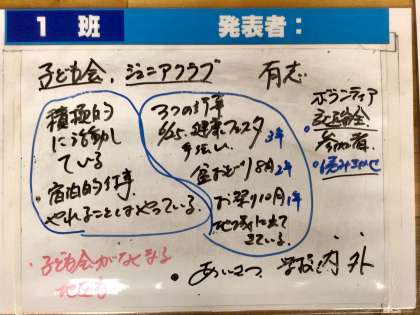 1 班
発表者：
子ども会、ジュニアクラブ
有志
積極的
に活動し
ている
・宿泊的行事
やれることはやっている。
3つの行事
6/25. 健康フェスタ 3年
手伝い
盆おどり8月 2年
お祭り10月 1年
地域に出て
きている。
ボランティア
参加者
・読みきかせ
・子ども会がなくなる
・あいさつ 学校内外